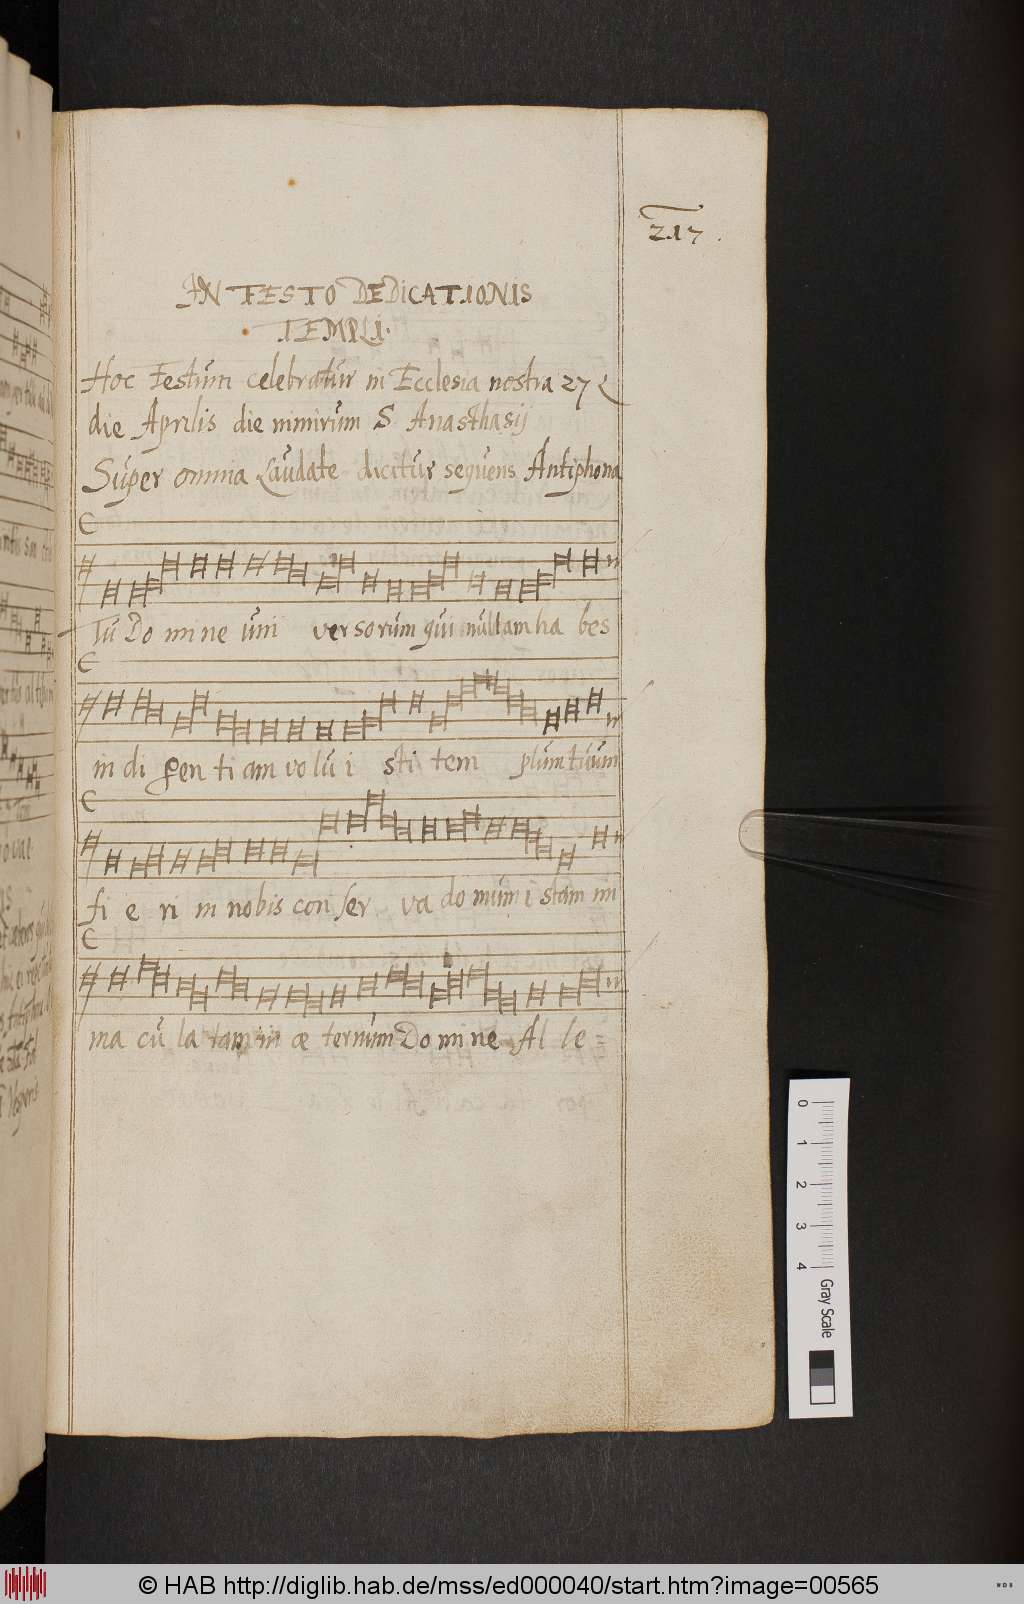 217.
IN FESTO DEDICATIONIS
TEMPLI.
Hoc Festum celebratur in Ecclesia nostra 27
die Aprilis die nimirum S Anasthasij
Super omnia Laudate dicitur sequens Antiphona
Tu Do mi ne uni versorum qui nullam ha bes
in di gen ti am vo lu i sti tem plum tuum
fi e ri in nobis con ser va do mum i stam im
ma cu la tam in æ ternum Do mi ne Al le
0 1 2 3 4 Gray Scale
© HAB http://diglib.hab.de/mss/ed000040/start.htm?image=00565